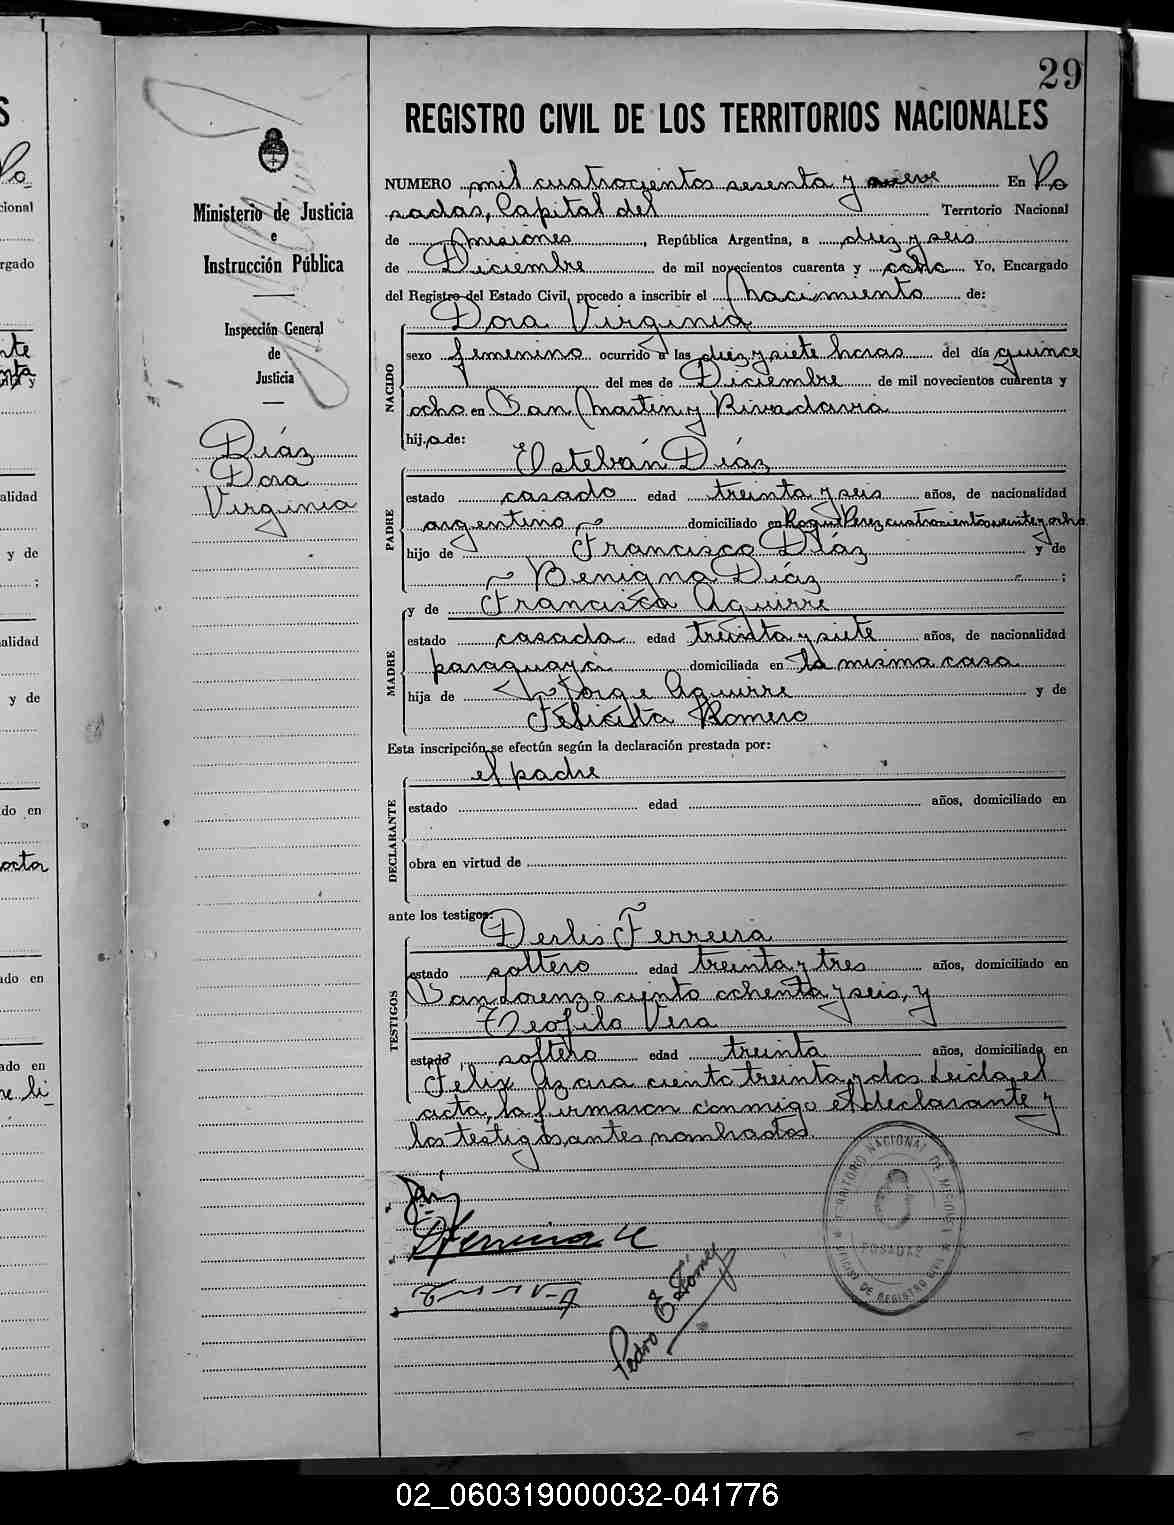 29
REGISTRO CIVIL DE LOS TERRITORIOS NACIONALES
Ministerio de Justicia
e
Instrucción Pública
Inspección General
de
Justicia
Díaz
Dora
Virginia
NUMERO mil cuatrocientos sesenta y nueve En Po
sadas, Capital del Territorio Nacional
de Misiones, República Argentina, a diez y seis
de Diciembre de mil novecientos cuarenta y ocho Yo, Encargado
del Registro del Estado Civil, procedo a inscribir el nacimiento de:
Dora Virginia
NACIDO
sexo femenino ocurrido a las diez y siete horas del día quince
del mes de Diciembre de mil novecientos cuarenta y
ocho en San Martin y Rivadavia
hija de:
Esteban Díaz
PADRE
estado casado edad treinta y seis años, de nacionalidad
argentino domiciliado en Roque Perez cuatrocientos veinte y ocho
hijo de Francisco Díaz y de
Benigna Díaz ;
y de Francisca Aguirre
MADRE
estado casada edad treinta y siete años, de nacionalidad
paraguaya domiciliada en la misma casa
hija de Jorge Aguirre y de
Felicita Romero
Esta inscripción se efectúa según la declaración prestada por:
el padre
DECLARANTE
estado edad años, domiciliado en
obra en virtud de
ante los testigos:
Derlis Ferreira
TESTIGOS
estado soltero edad treinta y tres años, domiciliado en
San Lorenzo ciento ochenta y seis, y
Teofilo Vera
estado soltero edad treinta años, domiciliado en
Felix Azara ciento treinta y dos Leida el
acta, la firmaron conmigo el declarante y
los testigos antes nombrados.
TERRITORIO NACIONAL DE MISIONES
POSADAS
OFICINA DE REGISTRO CIVIL
Pedro E. Gómez
02_060319000032-041776